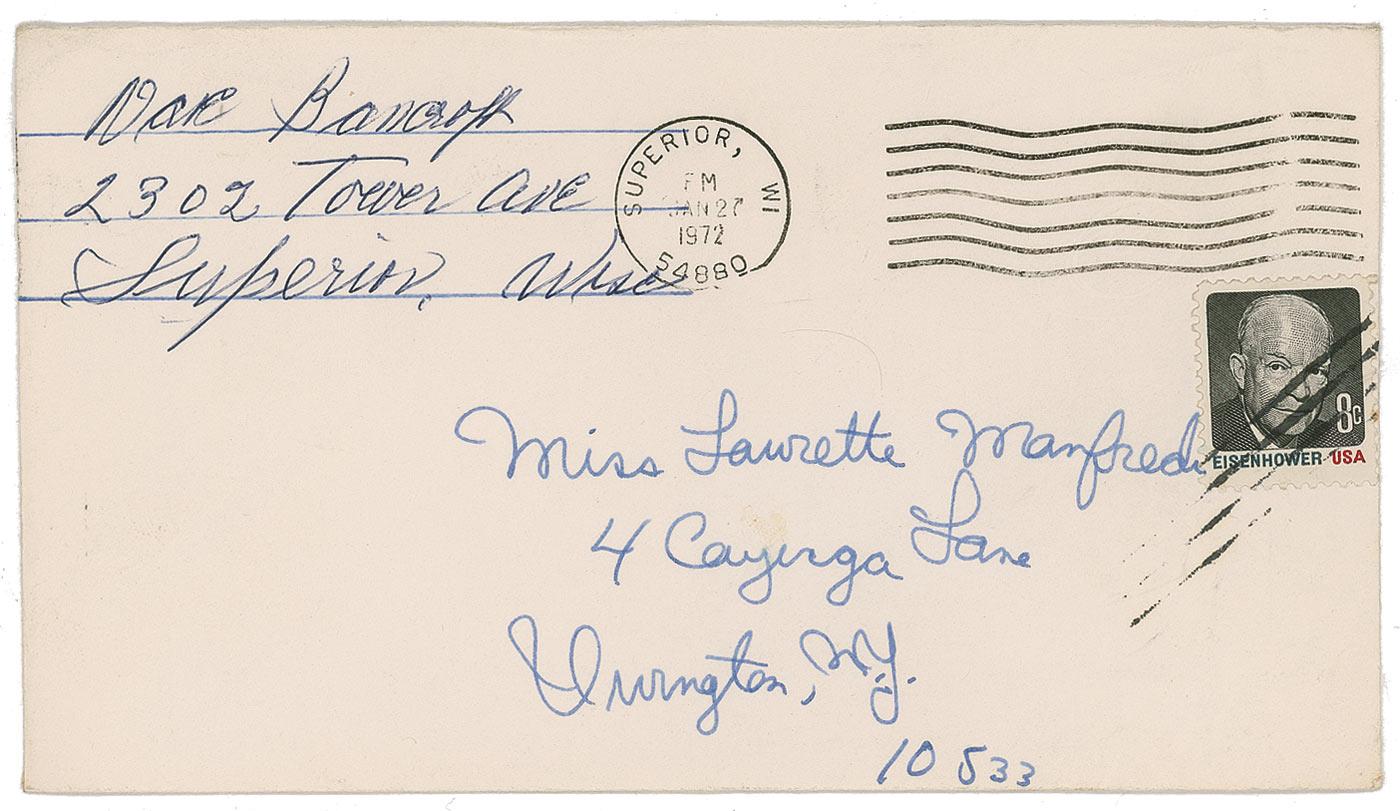 Dave Bancroft
2302 Tower Ave
Superior, Wisc
SUPERIOR, WI
PM
JAN 27
1972
54880
8c
EISENHOWER USA
Miss Laurette Manfredi
4 Cayuga Lane
Irvington, N.Y.
10533